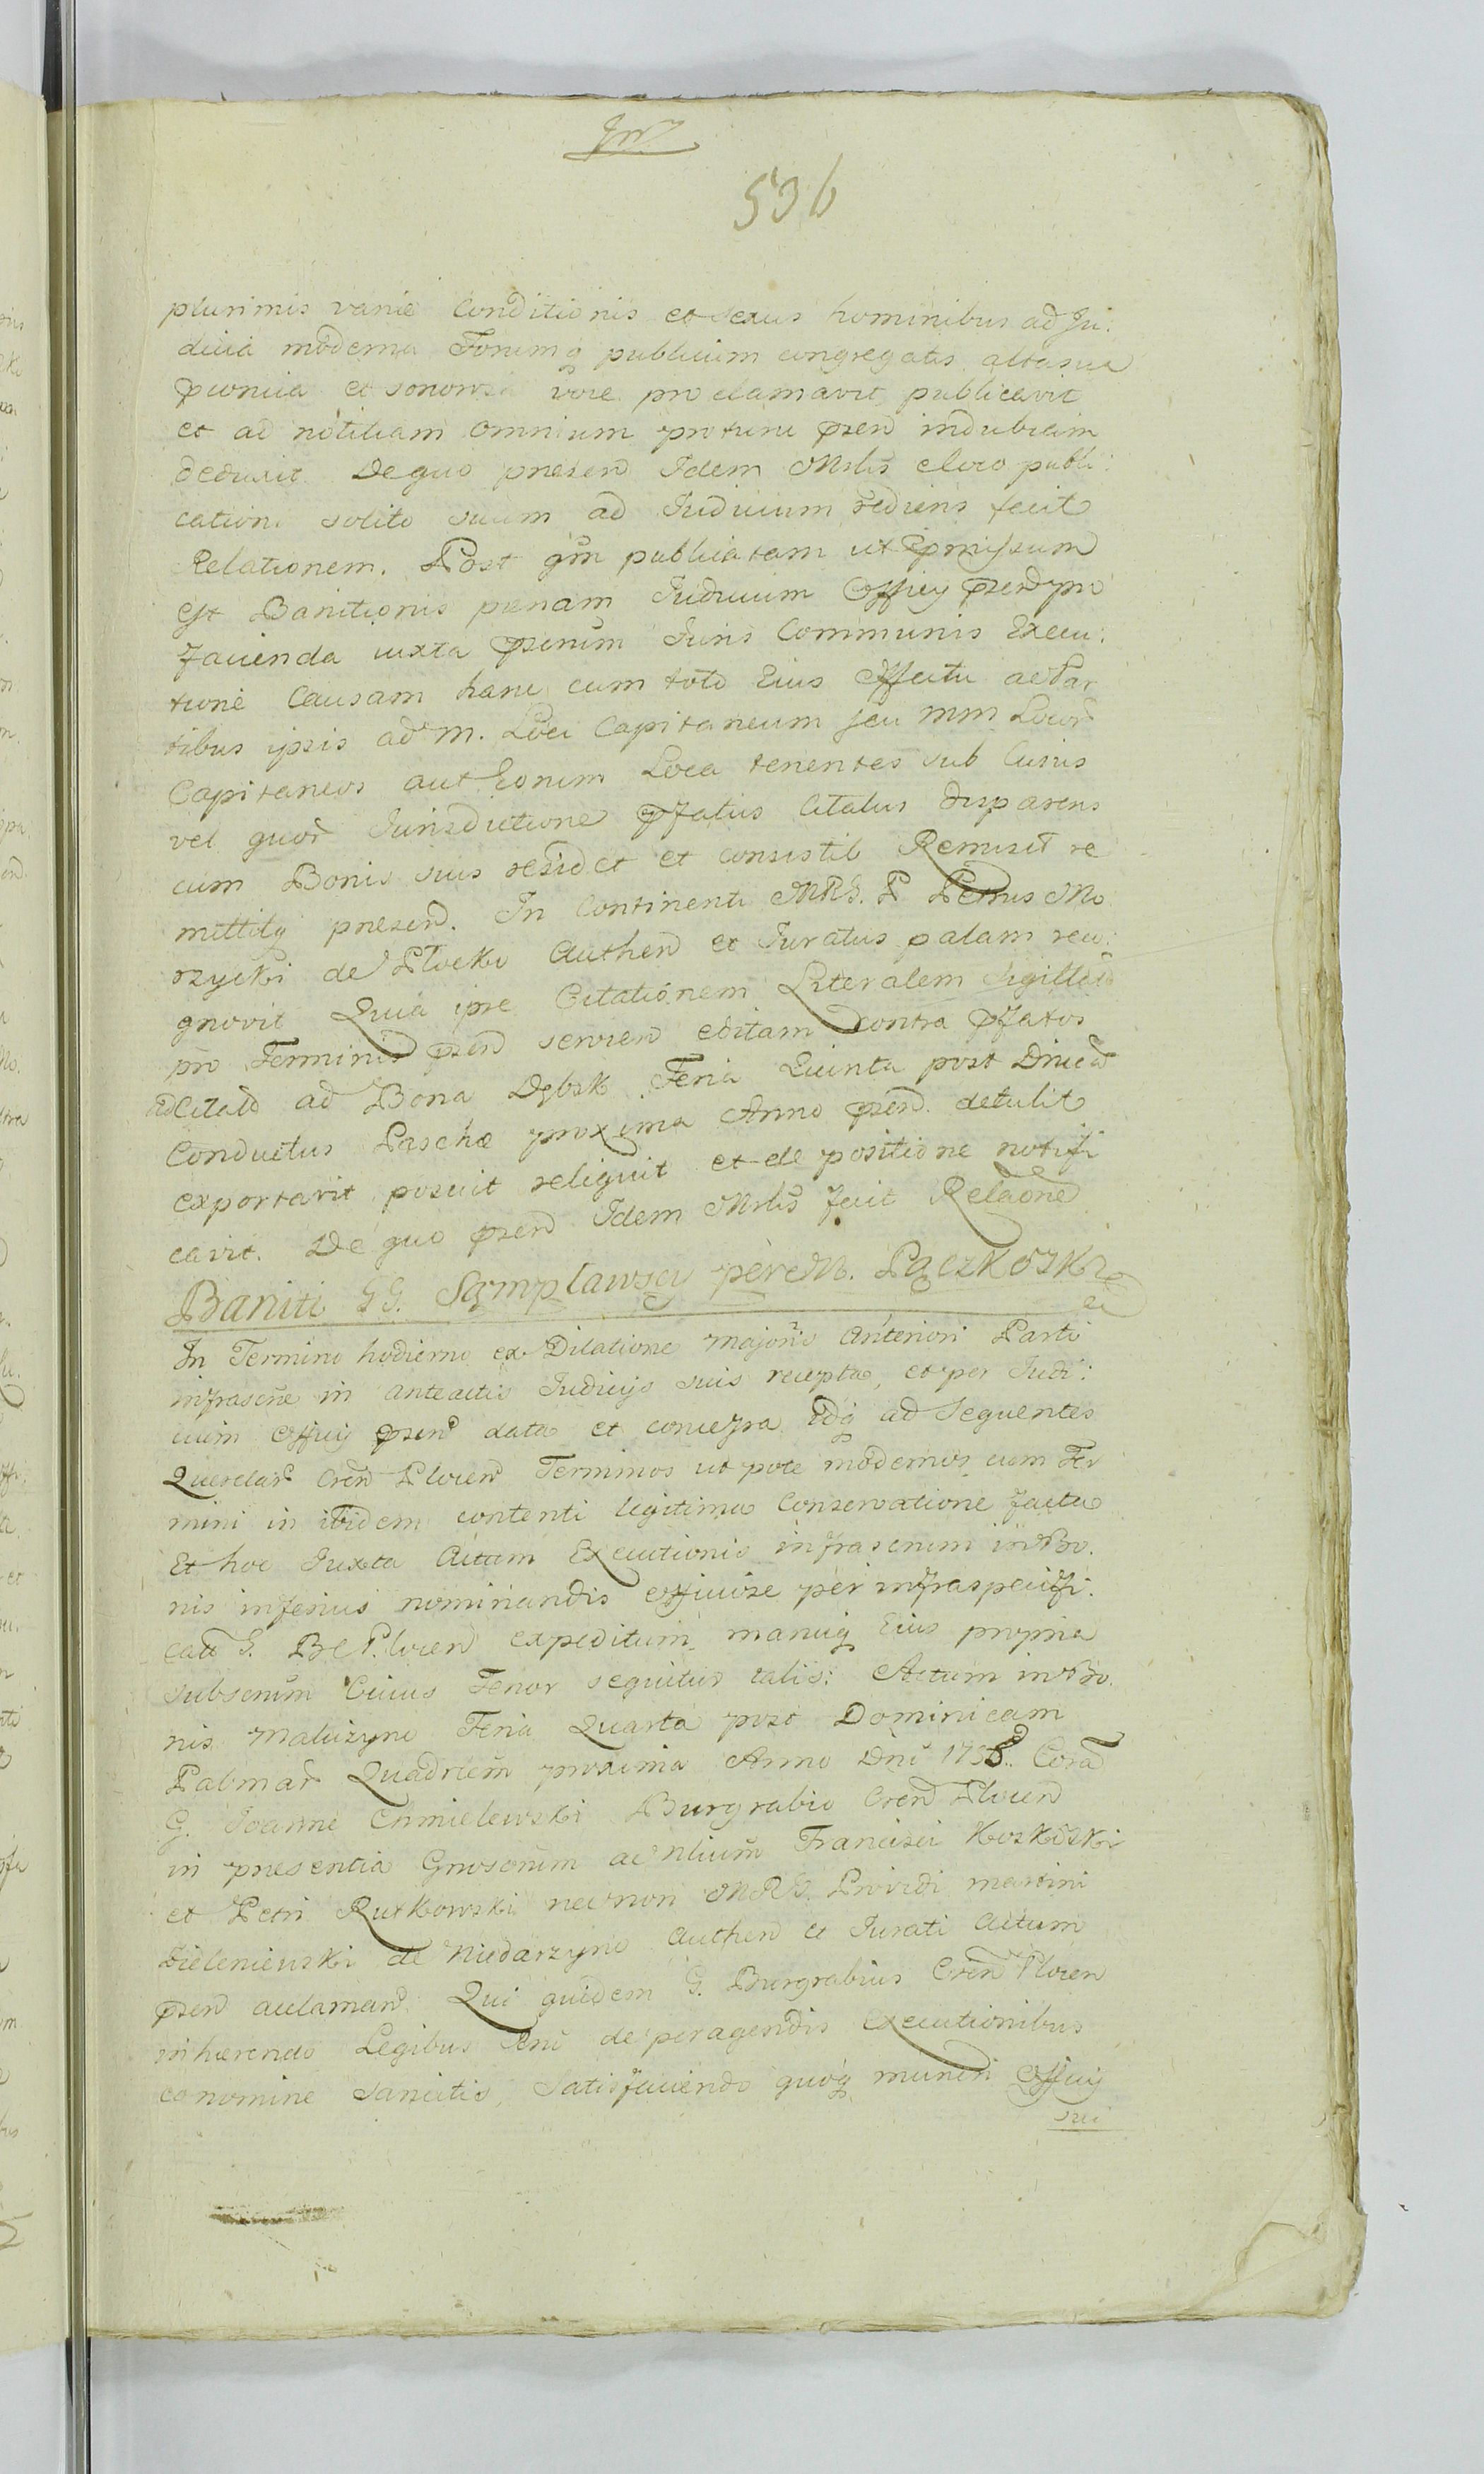 536
plurimis variæ Conditionis et sexus hominibus ad Ju:
dicia moderna Forumq publicum congregatis alta sua
et sonorosa voce proclamavit publicavit
et ad notitiam omnium protunc præn indubiam
deduxit De quo præsen Idem Mrlis e loco publi:
cationi solito suum ad Judicium rediens fecit
Relationem. Post qm publicatam ut præmissum
est Banitionis pænam Judicium Officij præn pro
facienda iuxta Juris Communis Execu:
tione Causam hanc cum toto Eius effectu ac Par
tibus ipsis ad M. Loci Capitaneum seu MM Locor
Capitaneos aut Eorum Loca tenentes sub Cuius
vel quor Jurisdictione pfatus Citatus
cum Bonis suis residet et consistit Remisit re
mittitq præsen. In Continenti MRS. P Petrus Mo
rzycki de Płocko Authen et Juratus palam reco:
gnovit Quia ipse Citationem Literalem Sigillat
pro Terminis præn servien editam contra pfatos
adCitato ad Bona Dębsk Feria Quinta post Dnicã
Conductus Paschæ proxima Anno præn. detulit
exportavit posuit reliquit et de positione notifi
cavit. De quo præn Idem Mrlis fecit Relaõne
Baniti GG. Sąmpławscy per M. Pączkoski
In Termino hodierno ex Dilatione majoris Anteriori Parti
infrascrie in anteactis Judicijs suis recepta, et per Judi:
cium Officij præn data et concessa idq ad sequentes
Querelar Cren Plocen Terminos ut pote modernos cum Ter
mini in ibidem contenti legitima Conservatione facta
Et hoc Juxta Actum Executionis infrascrium in Bo:
nis inferius nominandis officiose per infraspecifi:
catũ G. BCPlocen expeditum manuq Eius propria
subscrium Cuius Tenor sequitur talis: Actum in Bo:
nis Maluzyno Feria Quarta post Dominicam
Palmar Quadrlem proxima Anno Dni 1758. Corã
G. Joanne Chmielewski Burgrabio Cren Plocen
in præsentia Gnrosorum ac Nlium Francisci Koskoski
et Petri Rutkowski necnon MRS. Providi Martini
Zieleniewski de Niedarzyno Authen et Jurati Actum
præn acclaman Qui quidem G. Burgrabius Cren Plocen
inhærendo Legibus Rni de peragendis executionibus
eo nomine sancitis, Satisfaciendo quoq muneri Officij
sui